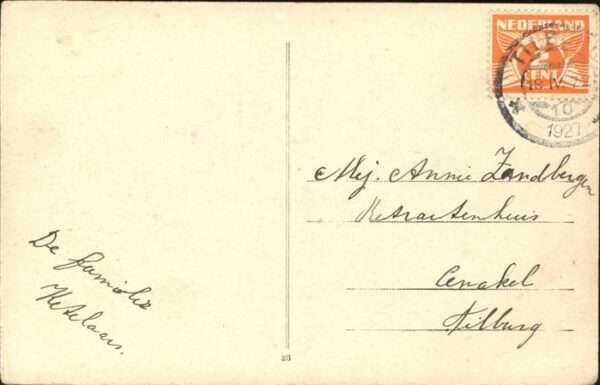 NEDERLAND
2
CENT
TIL
18.IV. 7
10
1927
Mej. Annie Zandbergen
Retraitenhuis
Cenakel
Tilburg
De familie
Ketelaars.
28